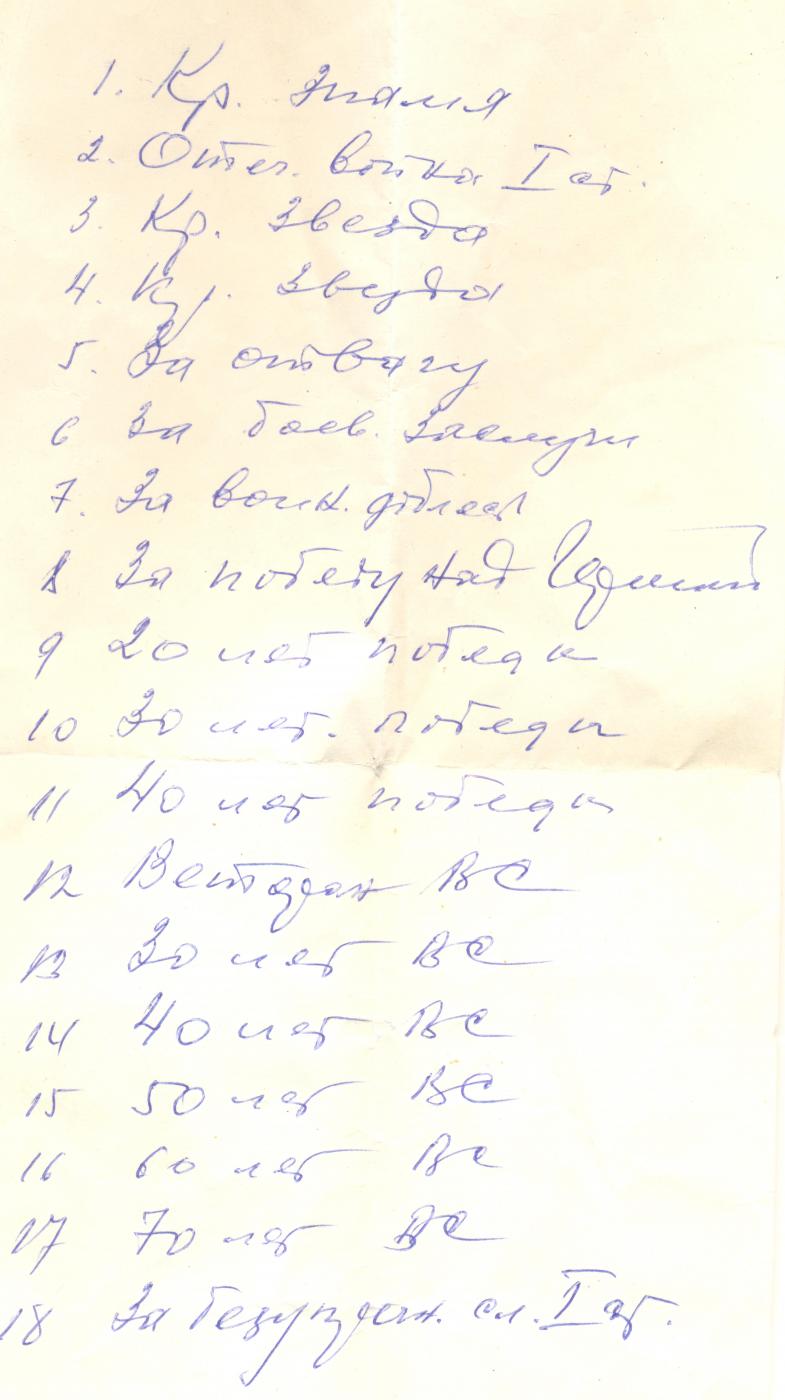 1. Кр. Знамя
2. Отеч. война I ст.
3. Кр. Звезда
4. Кр. Звезда
5. За отвагу
6 За боев. заслуги
7. За воин. доблест
8 За победу над Германий
9 20 лет победы
10 30 лет. победы
11 40 лет победы
12 Ветеран ВС
13 30 лет ВС
14 40 лет ВС
15 50 лет ВС
16 60 лет ВС
17 70 лет ВС
18 За безупречн. сл. I ст.